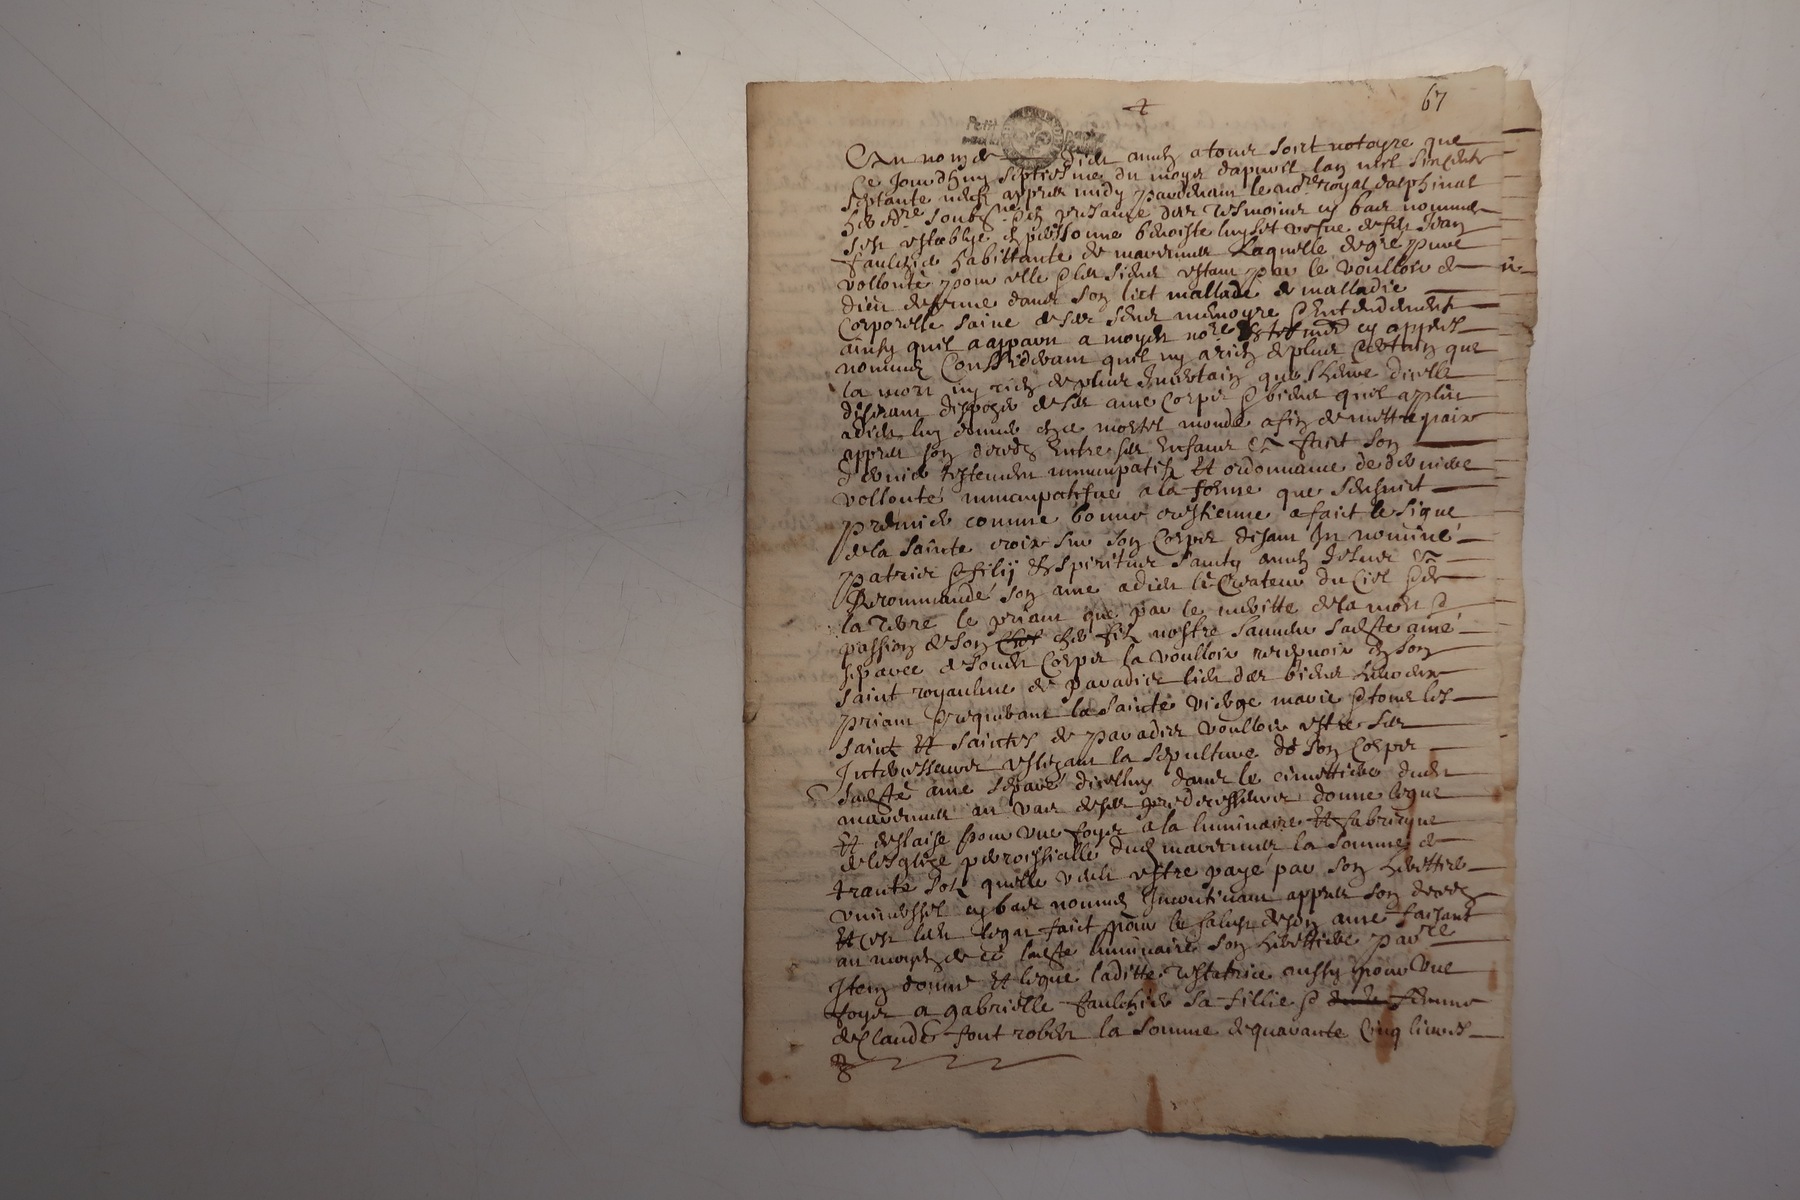 67
Au nom de Dieu amen a tous soict notoyre que
ce Jourdhuy septiesme du moys dapvril lan mil six cents
septante neuf appres midy pardevant le no.re royal dalphinal
her.re soub.ne et presance des tesmoins cy bas nommes
sest establye en personne benoiste vefve de feu Jean
faulchier habittante de mavennes Laquelle de gre pure
vollonte pour elle et les siens estant par le voulloir de
dieu detenue dans son lict mallade de malladie
Corporelle saine de ses sens memoyre et entendement
ainsy quil a apparu a moydit no.re et tesmoins cy appres
nommes Considerant quil ny a rien de plus certain que
la mort ny rien de plus Incertain que lheure dicelle
desirant disposer de ses ame corps et biens quil a pleu
a dieu luy donner en ce mortel monde afin de mettre paix
appres son deceds entre ses enfans a faict son
dernier testement nuncupatif et ordonnance de derniere
vollonte nuncupatifve a la forme que sensuict
Premier comme bonne crestienne a faict le signe
de la sainte croix sur son corps disant In nomine
patris et filij et spiritus santy amen Jesus a
Recommande son ame a dieu le Createur du Ciel et de
la terre le priant que par le meritte de la mort et
passion de son cher filz nostre sauveur sadeste ame
separee de sondit Corps la voulloir recepvoir en son
saint royaulme de paradis lieu des biens heureux
priant et requerant la Sainte vierge marie et tous les
saints et saintes de paradis voulloir estre ses
Intercesseurs eslizant la sepulture de son Corps
sadeste ame separe dicelluy dans le cimettiere dudit
mavennes au vas de ses predecesseurs donne legue
et deslaise pour une foys a la luminaire et fabricque
de lesglize perroissialle dud. mavennes la somme de
trante sols quelle veult estre paye par son herittier
universsel cy bas nomme Incontinant appres son deceds
et ces led. legat faict pour le salut de son ame faisant
au moyen de ce ladeste luminaire son herittiere par.re
Item donne et legue laditte testatrice aussy pour une
foys a gabrielle faulchier sa fillie et femme
de Claude font robert la somme de quarante cinq livres